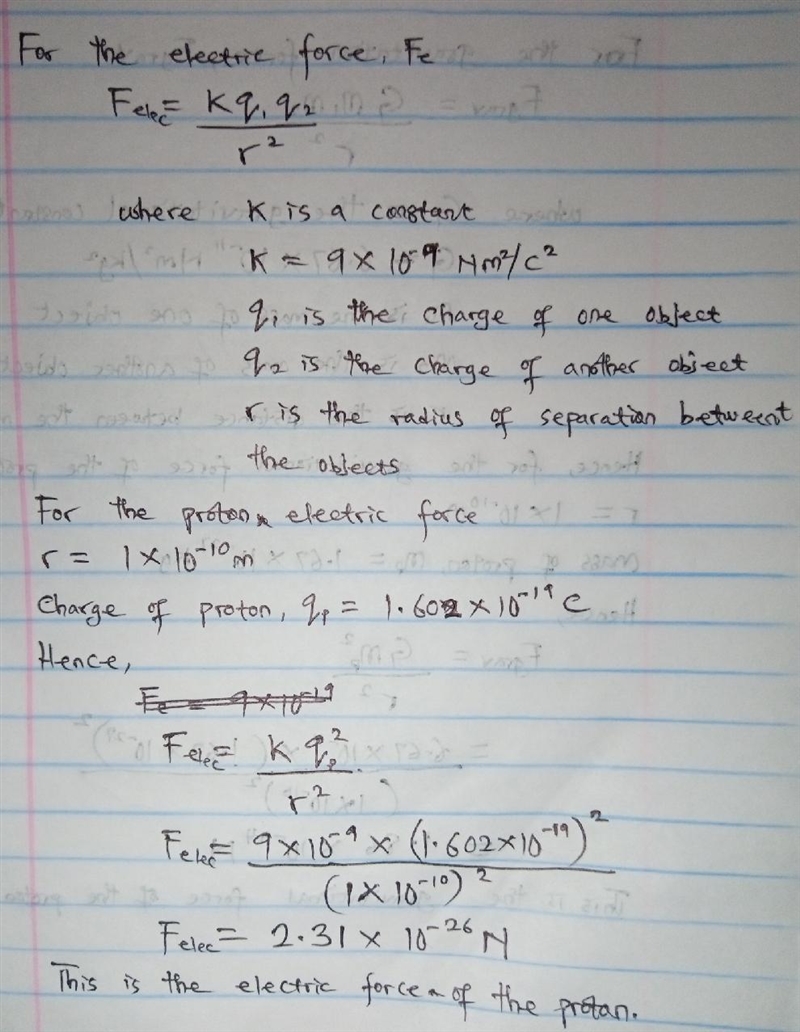 For the electric force, Fe
Felec = Kq₁q₂ / r²
where K is a constant
K = 9 × 10⁻⁹ Nm²/C²
q₁ is the charge of one object
q₂ is the charge of another object
r is the radius of separation betweent
the objects
For the proton electric force
r = 1 × 10⁻¹⁰ m
Charge of proton, qₚ = 1.602 × 10⁻¹⁹ C
Hence,
Fe = 9 × 10⁻¹⁹
Felec = K qₚ² / r²
Felec = 9 × 10⁻⁹ × (1.602 × 10⁻¹⁹)² / (1 × 10⁻¹⁰)²
Felec = 2.31 × 10⁻²⁶ N
This is the electric force of the proton.